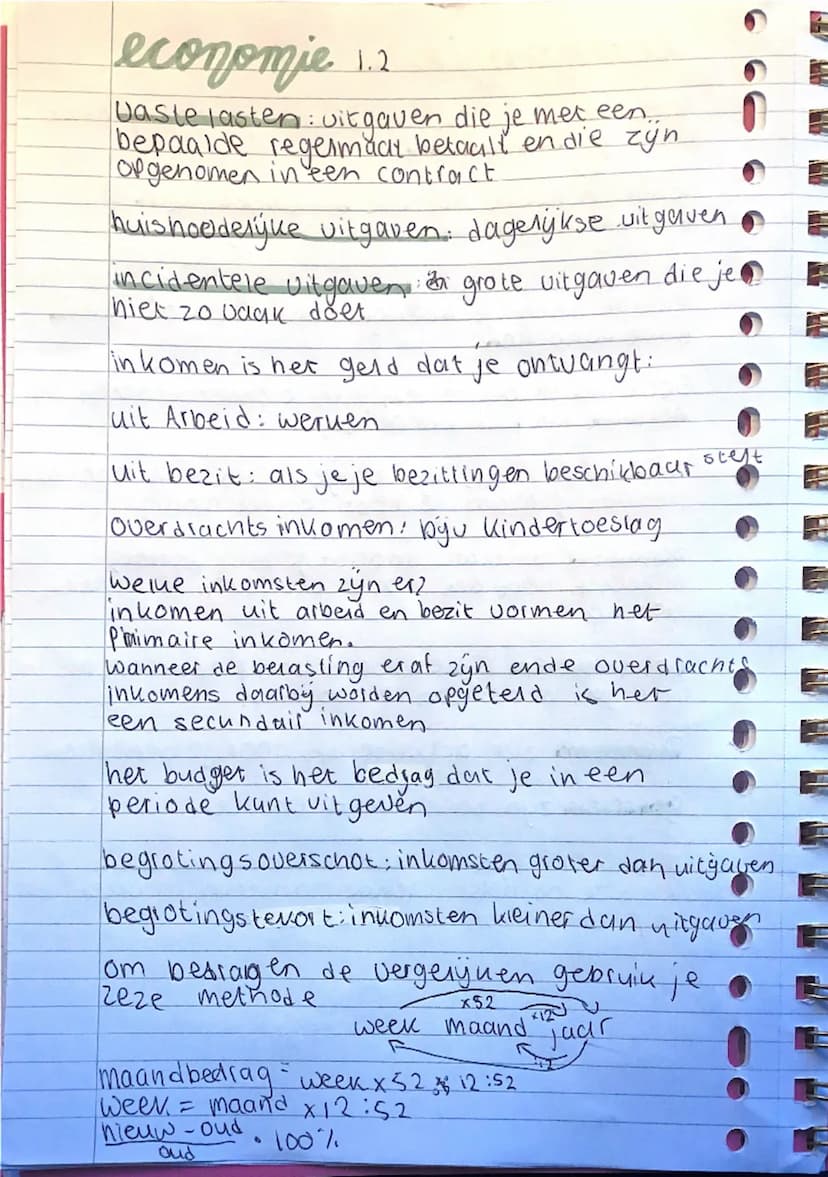 economie 1.2
vaste lasten: uitgaven die je met een
bepaalde regelmaat betaalt en die zijn
opgenomen in een contract
huishoudelijke uitgaven: dagelijkse uitgaven
incidentele uitgaven: grote uitgaven die je
niet zo vaak doet
inkomen is het geld dat je ontvangt:
uit Arbeid: werken
uit bezit: als je je bezittingen beschikbaar stelt
overdrachts inkomen: bijv kindertoeslag
welke inkomsten zijn er?
inkomen uit arbeid en bezit vormen het
primaire inkomen.
wanneer de belasting eraf zijn en de overdrachts
inkomens daarbij worden opgeteld is het
een secundair inkomen
het budget is het bedrag dat je in een
periode kunt uitgeven
begrotingsoverschot: inkomsten groter dan uitgaven
begrotingstekort: inkomsten kleiner dan uitgaven
om bedragen de vergelijken gebruik je
zeze methode
x52
x12
week maand jaar
:12
maandbedrag = week x 52 : 12 :52
week = maand x12 :52
nieuw - oud
oud
. 100%